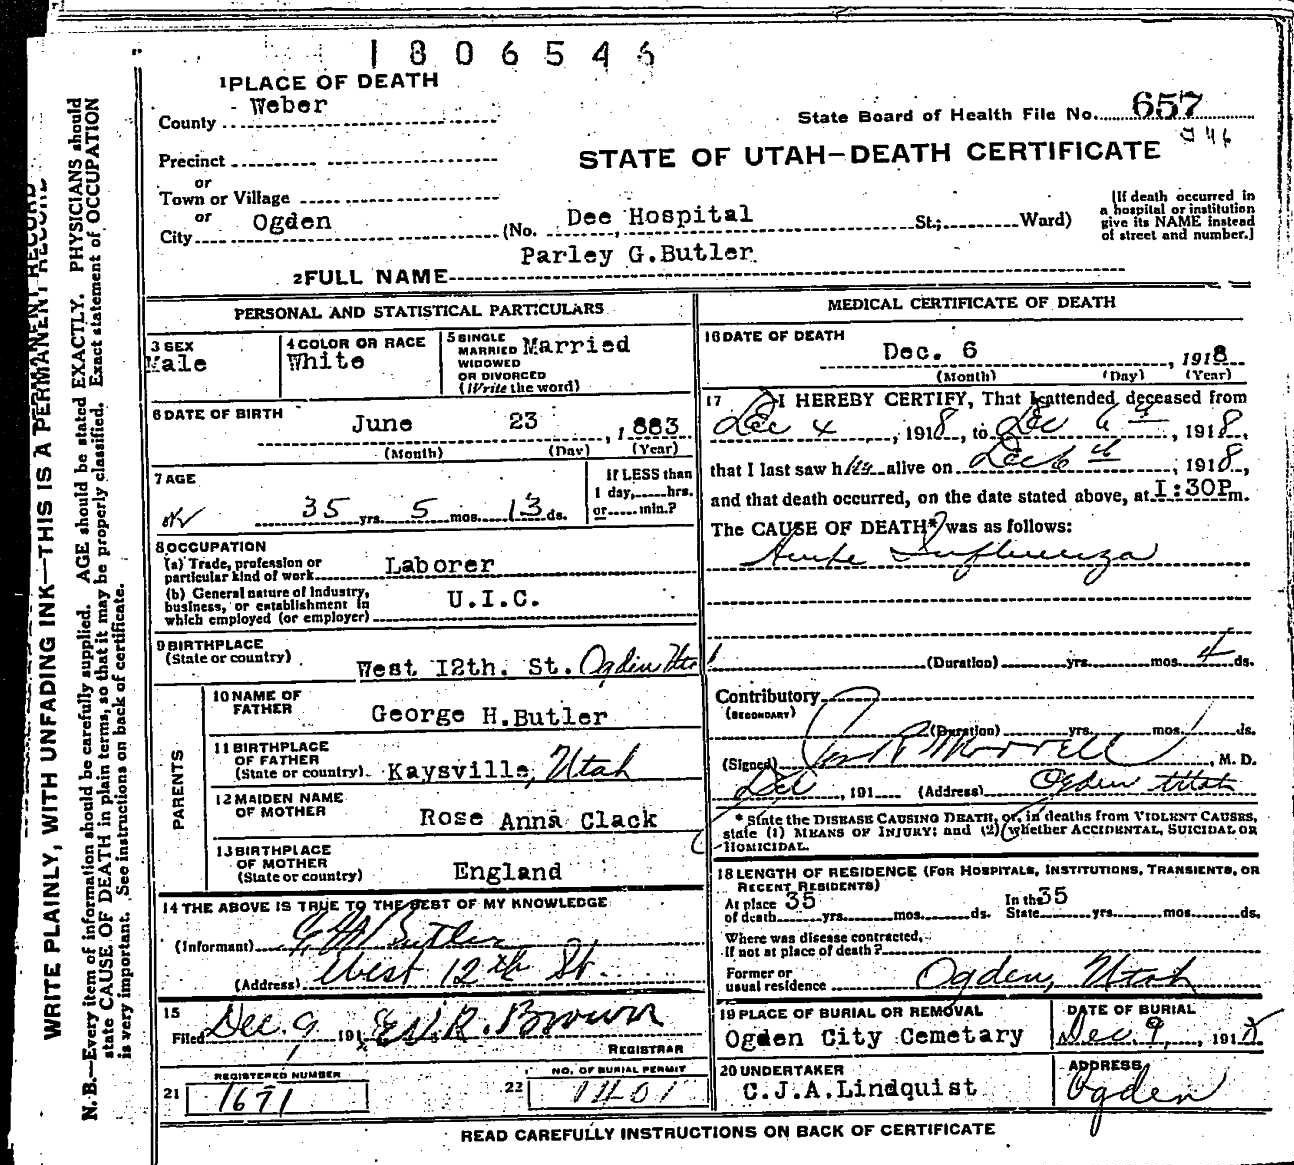 1806546
1 PLACE OF DEATH
County Weber
State Board of Health File No. 657
946
Precinct
or
Town or Village
or
City Ogden (No. Dee Hospital St.; Ward)
STATE OF UTAH—DEATH CERTIFICATE
[If death occurred in
a hospital or institution
give its NAME instead
of street and number.]
2 FULL NAME Parley G. Butler.
PERSONAL AND STATISTICAL PARTICULARS
3 SEX
Male
4 COLOR OR RACE
White
5 SINGLE
MARRIED
WIDOWED
OR DIVORCED
(Write the word)
Married
6 DATE OF BIRTH
June 23, 1883
(Month) (Day) (Year)
7 AGE
35 yrs. 5 mos. 13 ds.
If LESS than
1 day, hrs.
or min.?
8 OCCUPATION
(a) Trade, profession or
particular kind of work Laborer
(b) General nature of Industry,
business, or establishment in
which employed (or employer) U.I.C.
9 BIRTHPLACE
(State or country) West 12th. St. Ogden Utah
PARENTS
10 NAME OF
FATHER George H. Butler
11 BIRTHPLACE
OF FATHER
(State or country) Kaysville, Utah
12 MAIDEN NAME
OF MOTHER Rose Anna Clack
13 BIRTHPLACE
OF MOTHER
(State or country) England
14 THE ABOVE IS TRUE TO THE BEST OF MY KNOWLEDGE
(Informant) Butler
(Address) West 12th St.
15
Filed Dec. 9, 191 Brown
REGISTRAR
REGISTERED NUMBER
21 1671
NO. OF BURIAL PERMIT
22 1401
MEDICAL CERTIFICATE OF DEATH
16 DATE OF DEATH
Dec. 6, 1918
(Month) (Day) (Year)
17 I HEREBY CERTIFY, That I attended deceased from
Dec 4, 1918, to Dec 6th, 1918,
that I last saw him alive on Dec 6th, 1918,
and that death occurred, on the date stated above, at 1:30P m.
The CAUSE OF DEATH* was as follows:
Acute Influenza
(Duration) yrs. mos. 4 ds.
Contributory
(SECONDARY)
(Duration) yrs. mos. ds.
(Signed) Morrell, M. D.
Dec, 191 (Address) Ogden Utah
* State the DISEASE CAUSING DEATH, or, in deaths from VIOLENT CAUSES,
state (1) MEANS OF INJURY; and (2) whether ACCIDENTAL, SUICIDAL OR
HOMICIDAL.
18 LENGTH OF RESIDENCE (FOR HOSPITALS, INSTITUTIONS, TRANSIENTS, OR
RECENT RESIDENTS)
At place
of death 35 yrs. mos. ds.
In the
State 35 yrs. mos. ds.
Where was disease contracted,
if not at place of death?
Former or
usual residence Ogden, Utah
19 PLACE OF BURIAL OR REMOVAL
Ogden City Cemetary
DATE OF BURIAL
Dec. 9, 1918
20 UNDERTAKER
C.J.A. Lindquist
ADDRESS
Ogden
READ CAREFULLY INSTRUCTIONS ON BACK OF CERTIFICATE
WRITE PLAINLY, WITH UNFADING INK—THIS IS A PERMANENT RECORD
N. B.—Every item of information should be carefully supplied. AGE should be stated EXACTLY. PHYSICIANS should
state CAUSE OF DEATH in plain terms, so that it may be properly classified. Exact statement of OCCUPATION
is very important. See instructions on back of certificate.